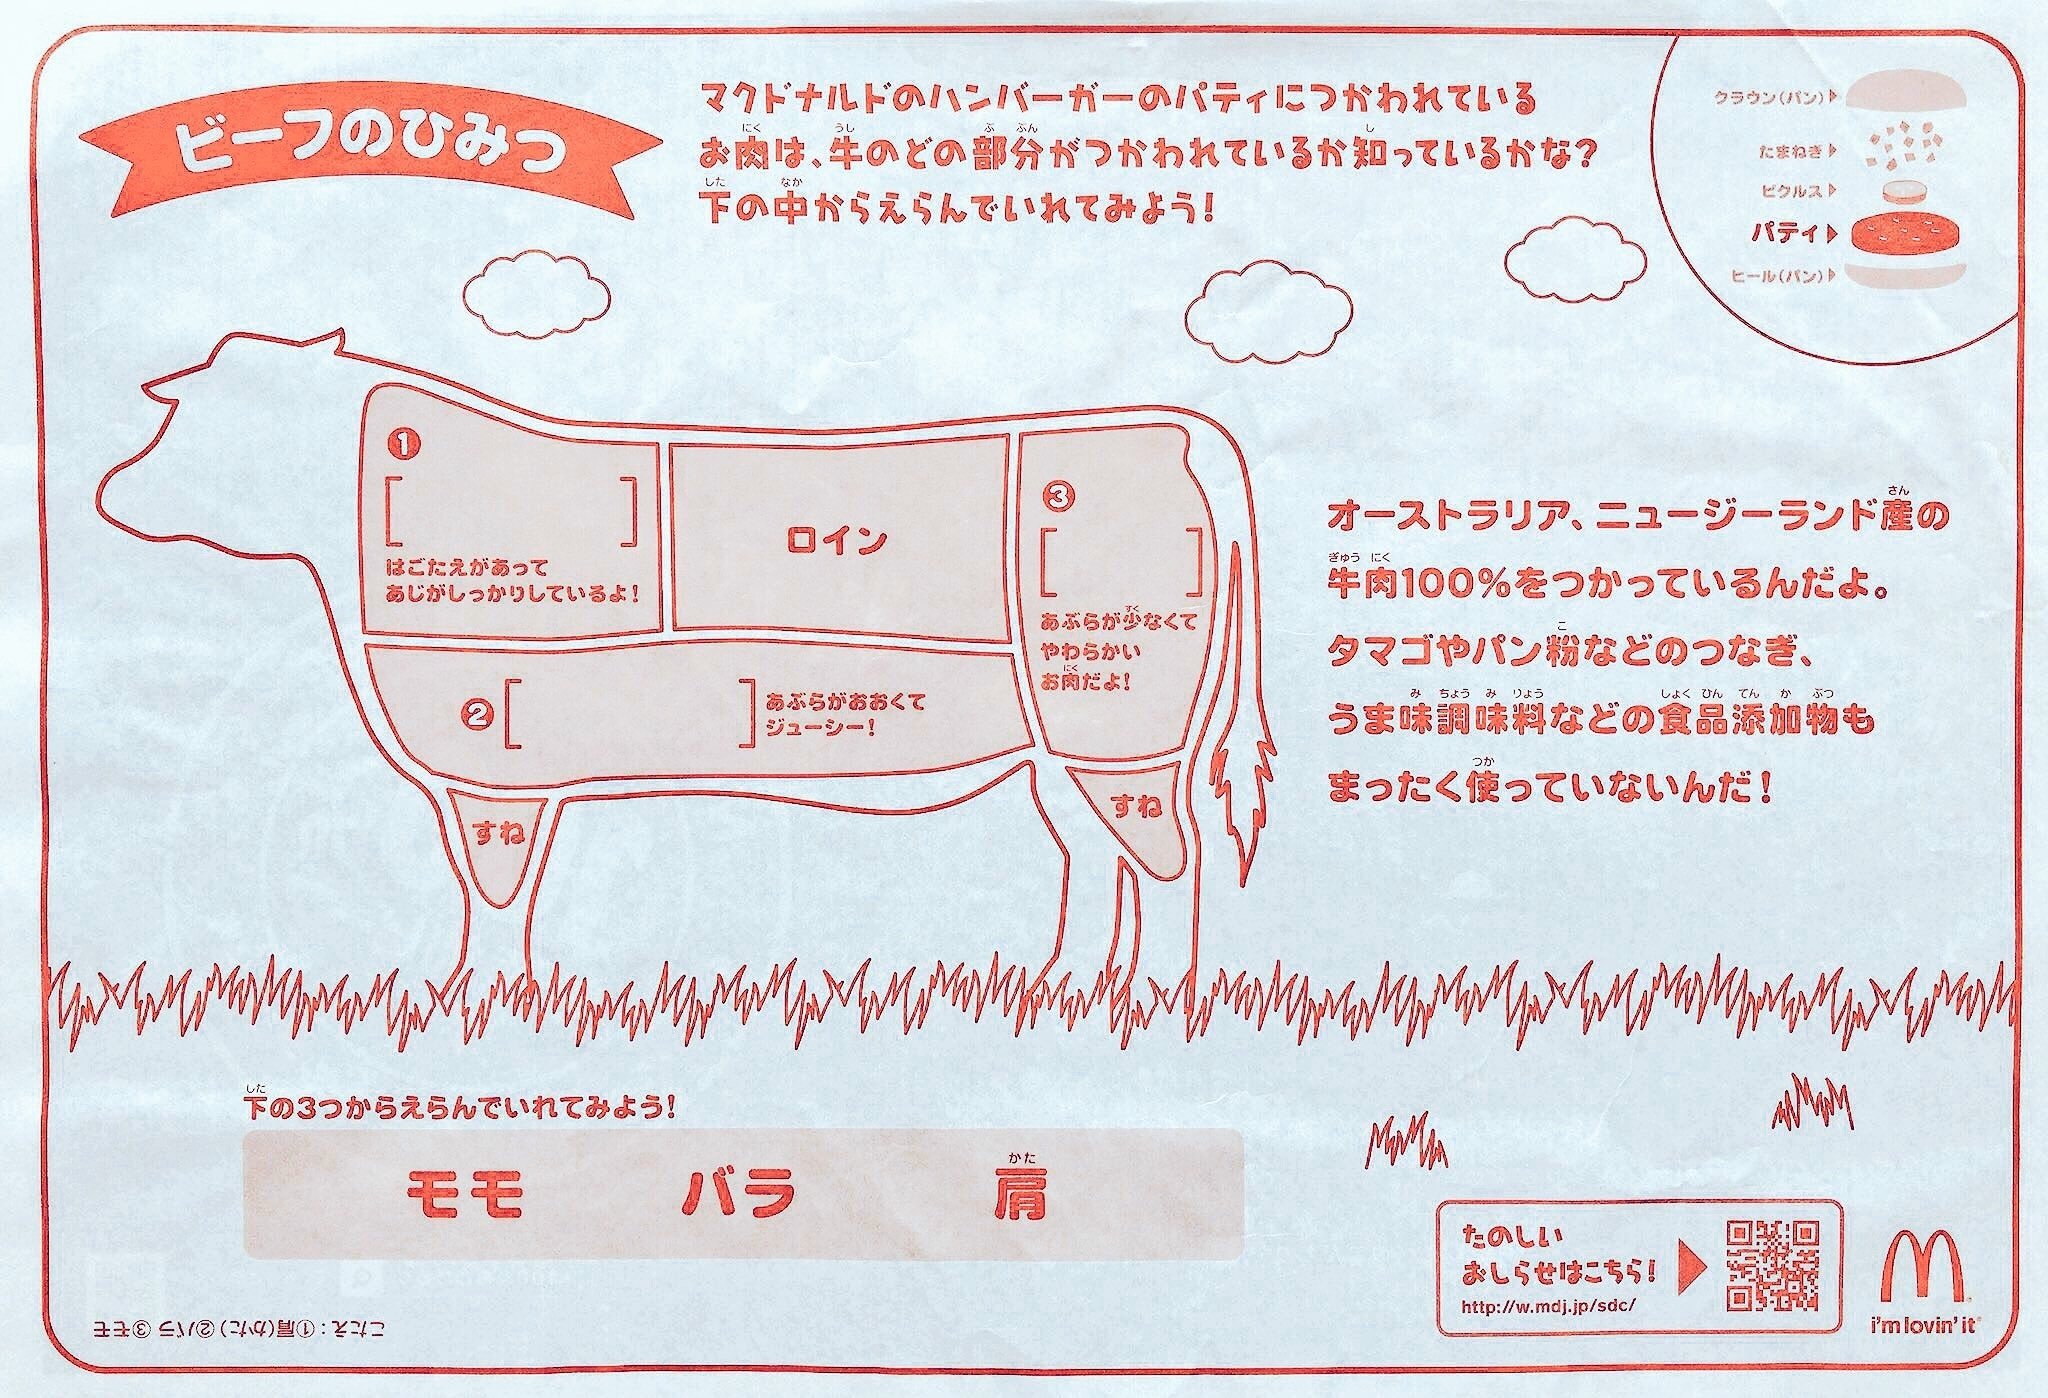 ビーフのひみつ
マクドナルドのハンバーガーのパティにつかわれている
お肉は、牛のどの部分がつかわれているか知っているかな?
にく うし ぶ ぶん し
下の中からえらんでいれてみよう!
した なか
クラウン(パン)
たまねぎ
ピクルス
パティ
ヒール(パン)
❶
[ ]
はごたえがあって
あじがしっかりしているよ!
ロイン
❸
[ ]
あぶらが少なくて
すく
やわらかい
お肉だよ!
にく
❷[ ]
あぶらがおおくて
ジューシー!
すね
すね
オーストラリア、ニュージーランド産の
さん
牛肉100%をつかっているんだよ。
ぎゅう にく
タマゴやパン粉などのつなぎ、
こ
うま味調味料などの食品添加物も
み ちょう み りょう しょく ひん てん か ぶつ
まったく使っていないんだ!
つか
下の3つからえらんでいれてみよう!
した
モモ バラ 肩
かた
たのしい
おしらせはこちら!
http://w.mdj.jp/sdc/
i'm lovin' it
こたえ:①肩(かた)②バラ ③モモ